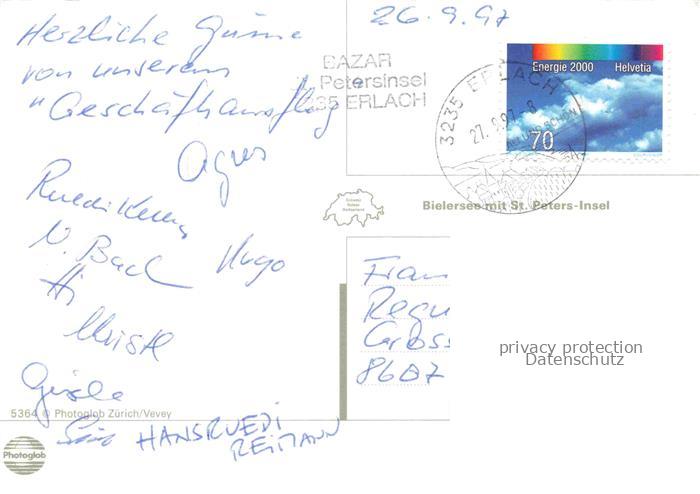 26.9.97
Herzliche Grüsse
von unserem
"Geschäftsausflug
Agnes
Ruedi
N. Bach
Hugo
Gisele
HANSRUEDI
REIMANN
BAZAR
Petersinsel
3235 ERLACH
Energie 2000 Helvetia
70
3235 ERLACH
27.9.97-8
Bielersee mit St. Peters-Insel
Schweiz
Suisse
Switzerland
Regu
Gross
8607
privacy protection
Datenschutz
5364 © Photoglob Zürich/Vevey
Photoglob